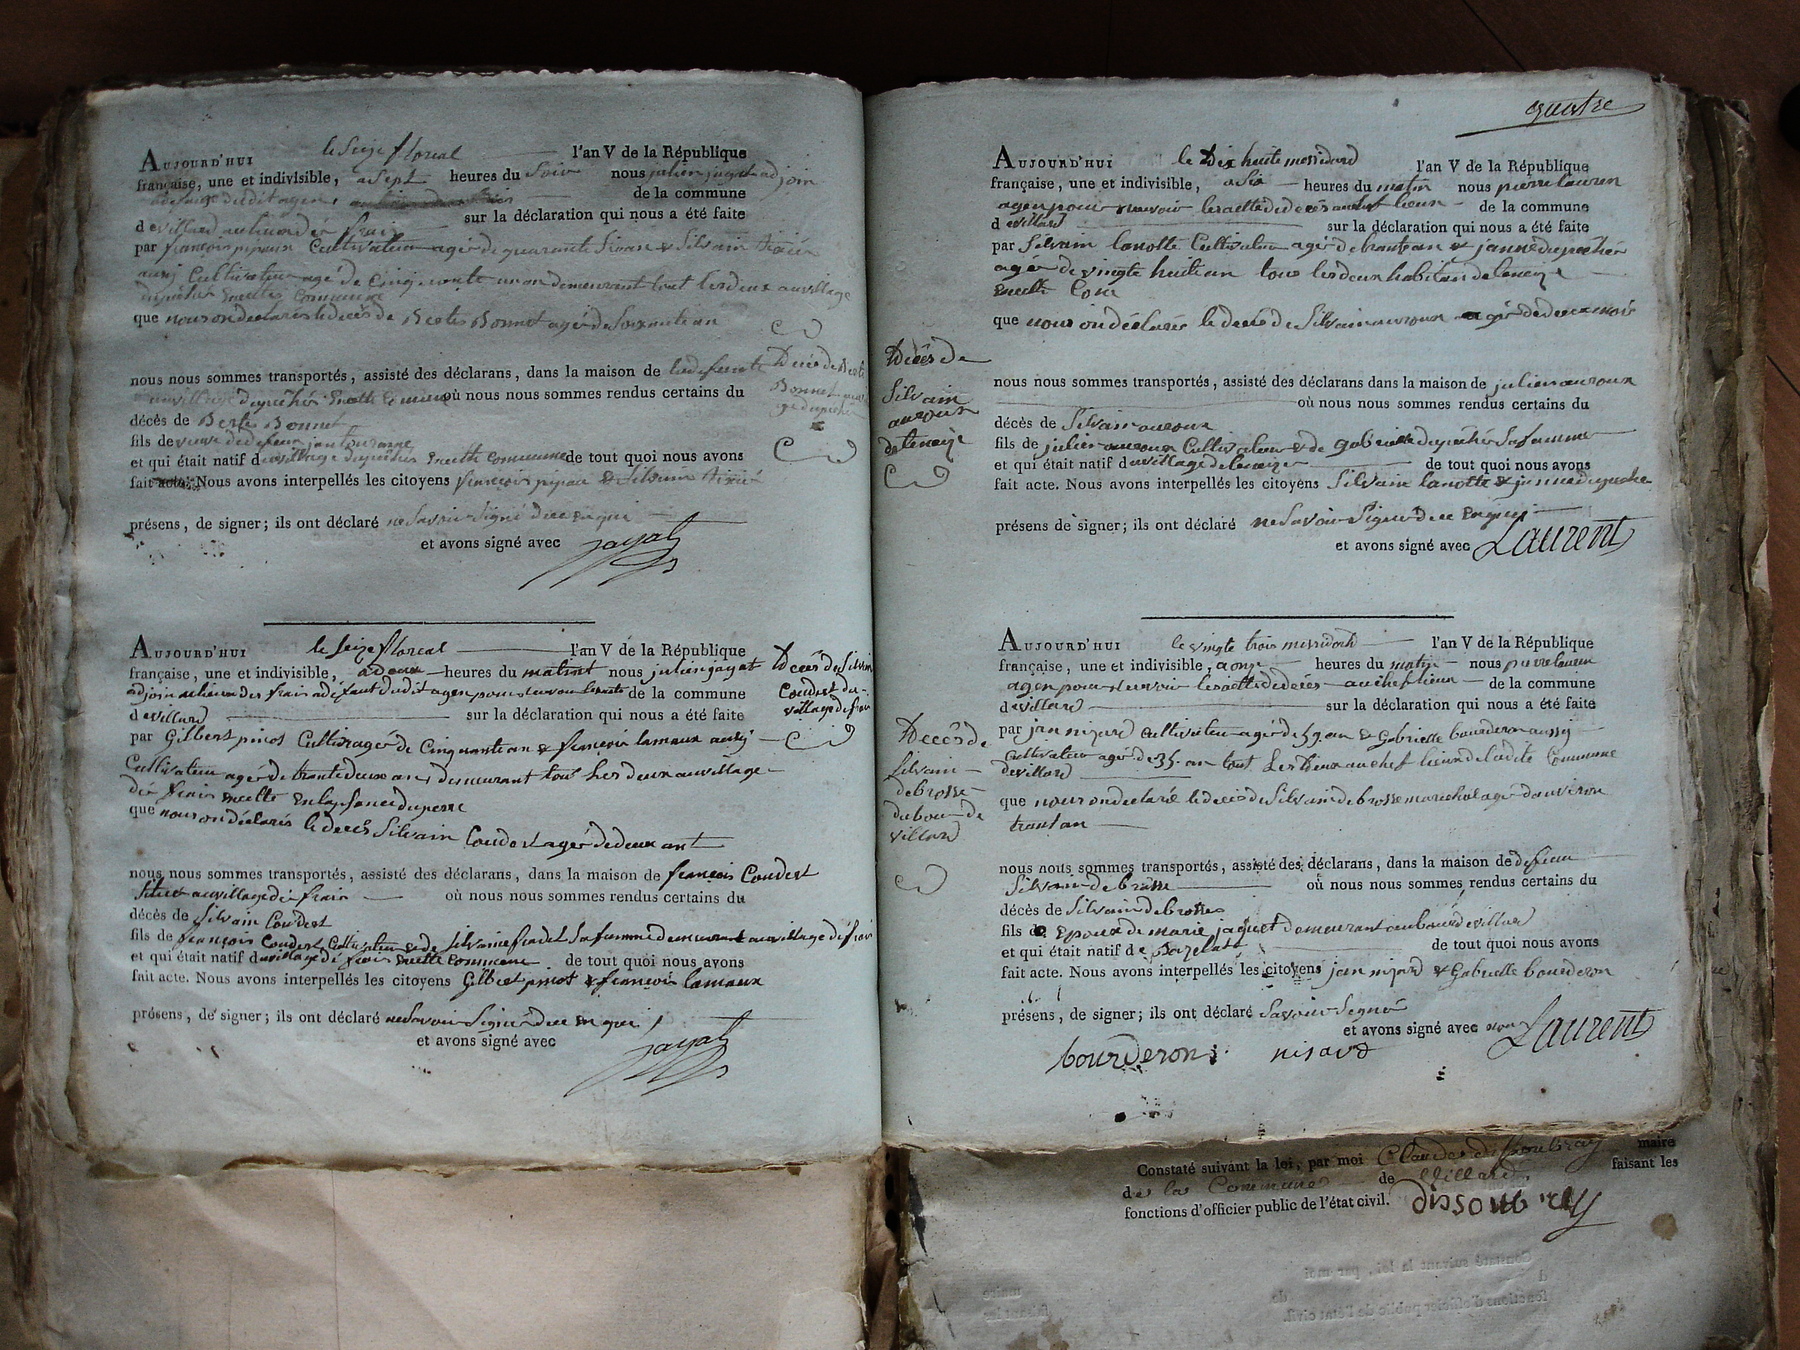 AUJOURD'HUI le seize floreal l'an V de la République
française, une et indivisible, a sept heures du soir nous julien jayat adjoin
de la commune
d evillard sur la déclaration qui nous a été faite
par françois pipaux Cultivateur agé de quarante six an & Silvain
aussy Cultivateur agé de Cinquante un an demeurant tout les deux au village
du pêchés en cette Commune
que nous on declarés le decés de Berte Bonnet agé de soixante an
Decés de Berte
Bonnet
nous nous sommes transportés, assisté des déclarans, dans la maison de la defunte
au village du pêchés en cette Commune où nous nous sommes rendus certains du
décès de Berte Bonnet
fils de veuve de defeun jan
et qui était natif du village du pechés en cette commune de tout quoi nous avons
fait acte. Nous avons interpellés les citoyens françois pipau & Silvain
présens, de signer; ils ont déclaré ne Savoir Signé de ce enqui
et avons signé avec jayat
AUJOURD'HUI le seize floreal l'an V de la République
française, une et indivisible, a deux heures du matint nous julien jayat
adjoin au lieu des frais a défaut dudit agen pour recevoir de la commune
d evillard sur la déclaration qui nous a été faite
par Gilbert pinot Cultiv agé de Cinquante an & françois lamaux aussy
Cultivateur agé de trante deux an, demeurant tous les deux au village
dé frais en cette en la presence du perre
que nous on déclarés le decés Silvain Coudert agé de deux ant
Decés de Silvin
Coudert du
village de frais
nous nous sommes transportés, assisté des déclarans, dans la maison de françois Coudert
situet au village dé frais où nous nous sommes rendus certains du
décès de Silvain Coudert
fils de françois Coudert Cultivateur & de Silvaine fradet Sa famme demeurant au village dé frais
et qui était natif du village dé frais en cette commune de tout quoi nous avons
fait acte. Nous avons interpellés les citoyens Gilbert pinot & françois lamaux
présens, de signer; ils ont déclaré ne Savoir Signé de ce enqui
et avons signé avec jayat
quatre
AUJOURD'HUI le Dix huite messidord l'an V de la République
française, une et indivisible, a sis heures du matin nous pierre lauren
agen pour recevoir les actte de decés au chef lieux de la commune
d evillard sur la déclaration qui nous a été faite
par Silvain lanotte Cultivateur agé de trante an & janne du pechés
agée de vingte huit an tous les deux habitan de leneize
en cette Come
que nous on déclarés le decés de Silvain auroux agé de deux mois
Decés de
Silvain
auroux
de leneize
nous nous sommes transportés, assisté des déclarans dans la maison de julien auroux
où nous nous sommes rendus certains du
décès de Silvain auroux
fils de julien auroux Cultivateur & de Gabrielle du pechés Sa famme
et qui était natif du village de leneize de tout quoi nous avons
fait acte. Nous avons interpellés les citoyens Silvain lanotte & janne du peche
présens de signer; ils ont déclaré ne Savoir Signer de ce enquis
et avons signé avec Laurent
AUJOURD'HUI le vingte trois messidord l'an V de la République
française, une et indivisible, a onze heures du matin nous pierre lauren
agen pour recevoir les actte de decés au chef lieux de la commune
d evillard sur la déclaration qui nous a été faite
par jan nizard cultivateur agé de 59 an & Gabrielle bourderon aussy
Cultivateur agé de 35 an tout Les Deux au chef lieux de ladite Commune
devillard
que nous on declaré le decés de Silvain debrosse marechal agé d'anviron
trant an
Decés de
Silvain
debrosse
du bour de
villard
nous nous sommes transportés, assisté des déclarans, dans la maison de defeun
Silvain debrosse où nous nous sommes rendus certains du
décès de Silvain debrosse
fils de Epoux de marie jaquet demeurant au bour devillard
et qui était natif de Bazelat de tout quoi nous avons
fait acte. Nous avons interpellés les citoyens jan nizard & Gabrielle bourderon
présens, de signer; ils ont déclaré Savoir Signé
et avons signé avec nous Laurent
bourderon nisard
Constaté suivant la loi, par moi Claude dissoubray maire
de la Commune de Villard faisant les
fonctions d'officier public de l'état civil. dissoubray